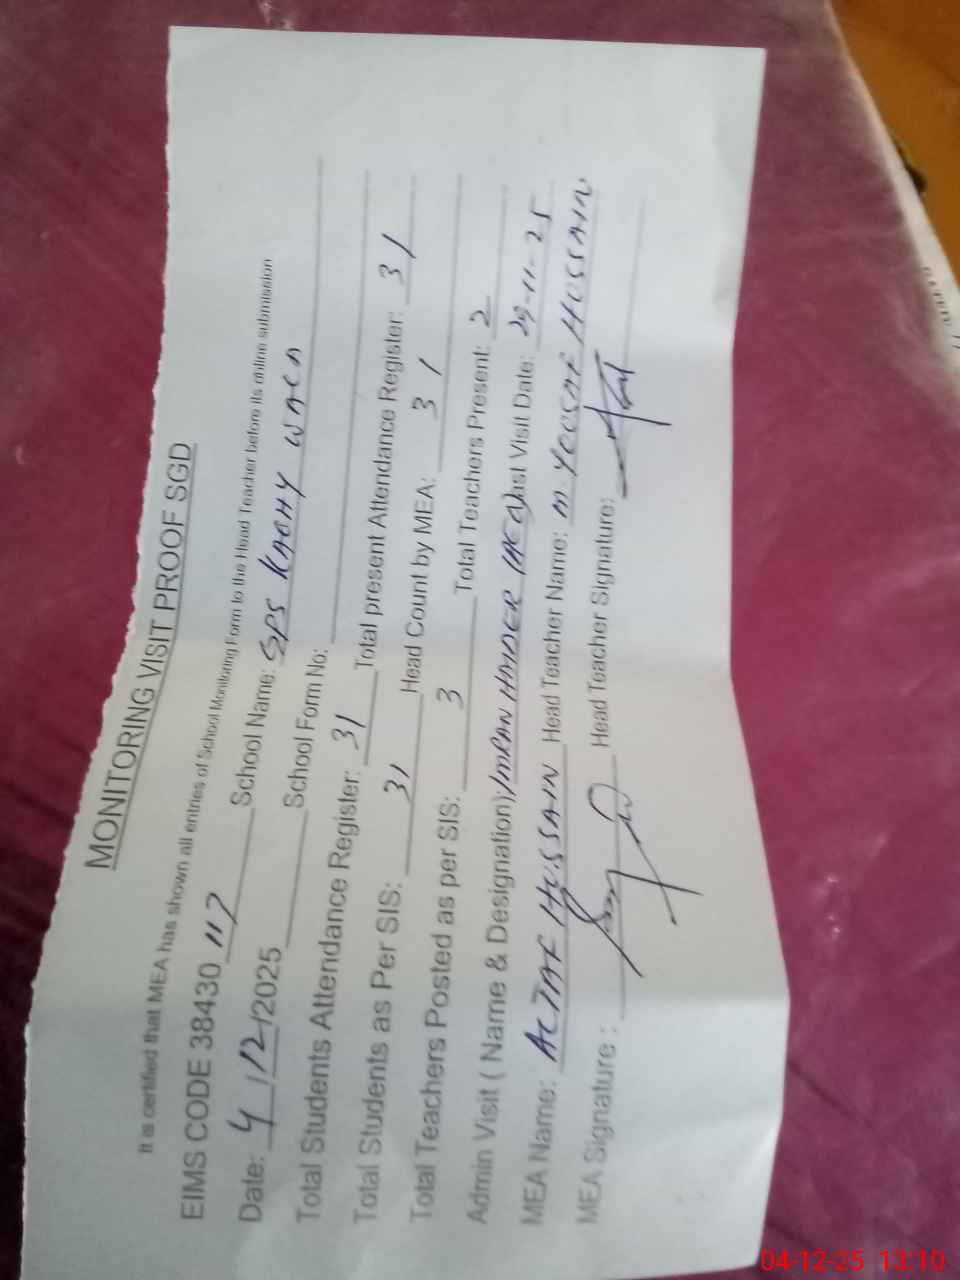 MONITORING VISIT PROOF SGD
It is certified that MEA has shown all entries of School Monitoring Form to the Head Teacher before its online submission
EIMS CODE 38430 117 School Name: GPS KACHY WALA
Date: 4/12/2025 School Form No:
Total Students Attendance Register: 31 Total present Attendance Register: 31
Total Students as Per SIS: 31 Head Count by MEA: 31
Total Teachers Posted as per SIS: 3 Total Teachers Present: 2
Admin Visit ( Name & Designation): IMRAN HAIDER Last Visit Date: 29-11-25
MEA Name: ALTAF HUSSAIN Head Teacher Name: M. YOUSAF HUSSAIN
MEA Signature : Head Teacher Signature:
04-12-25 13:10